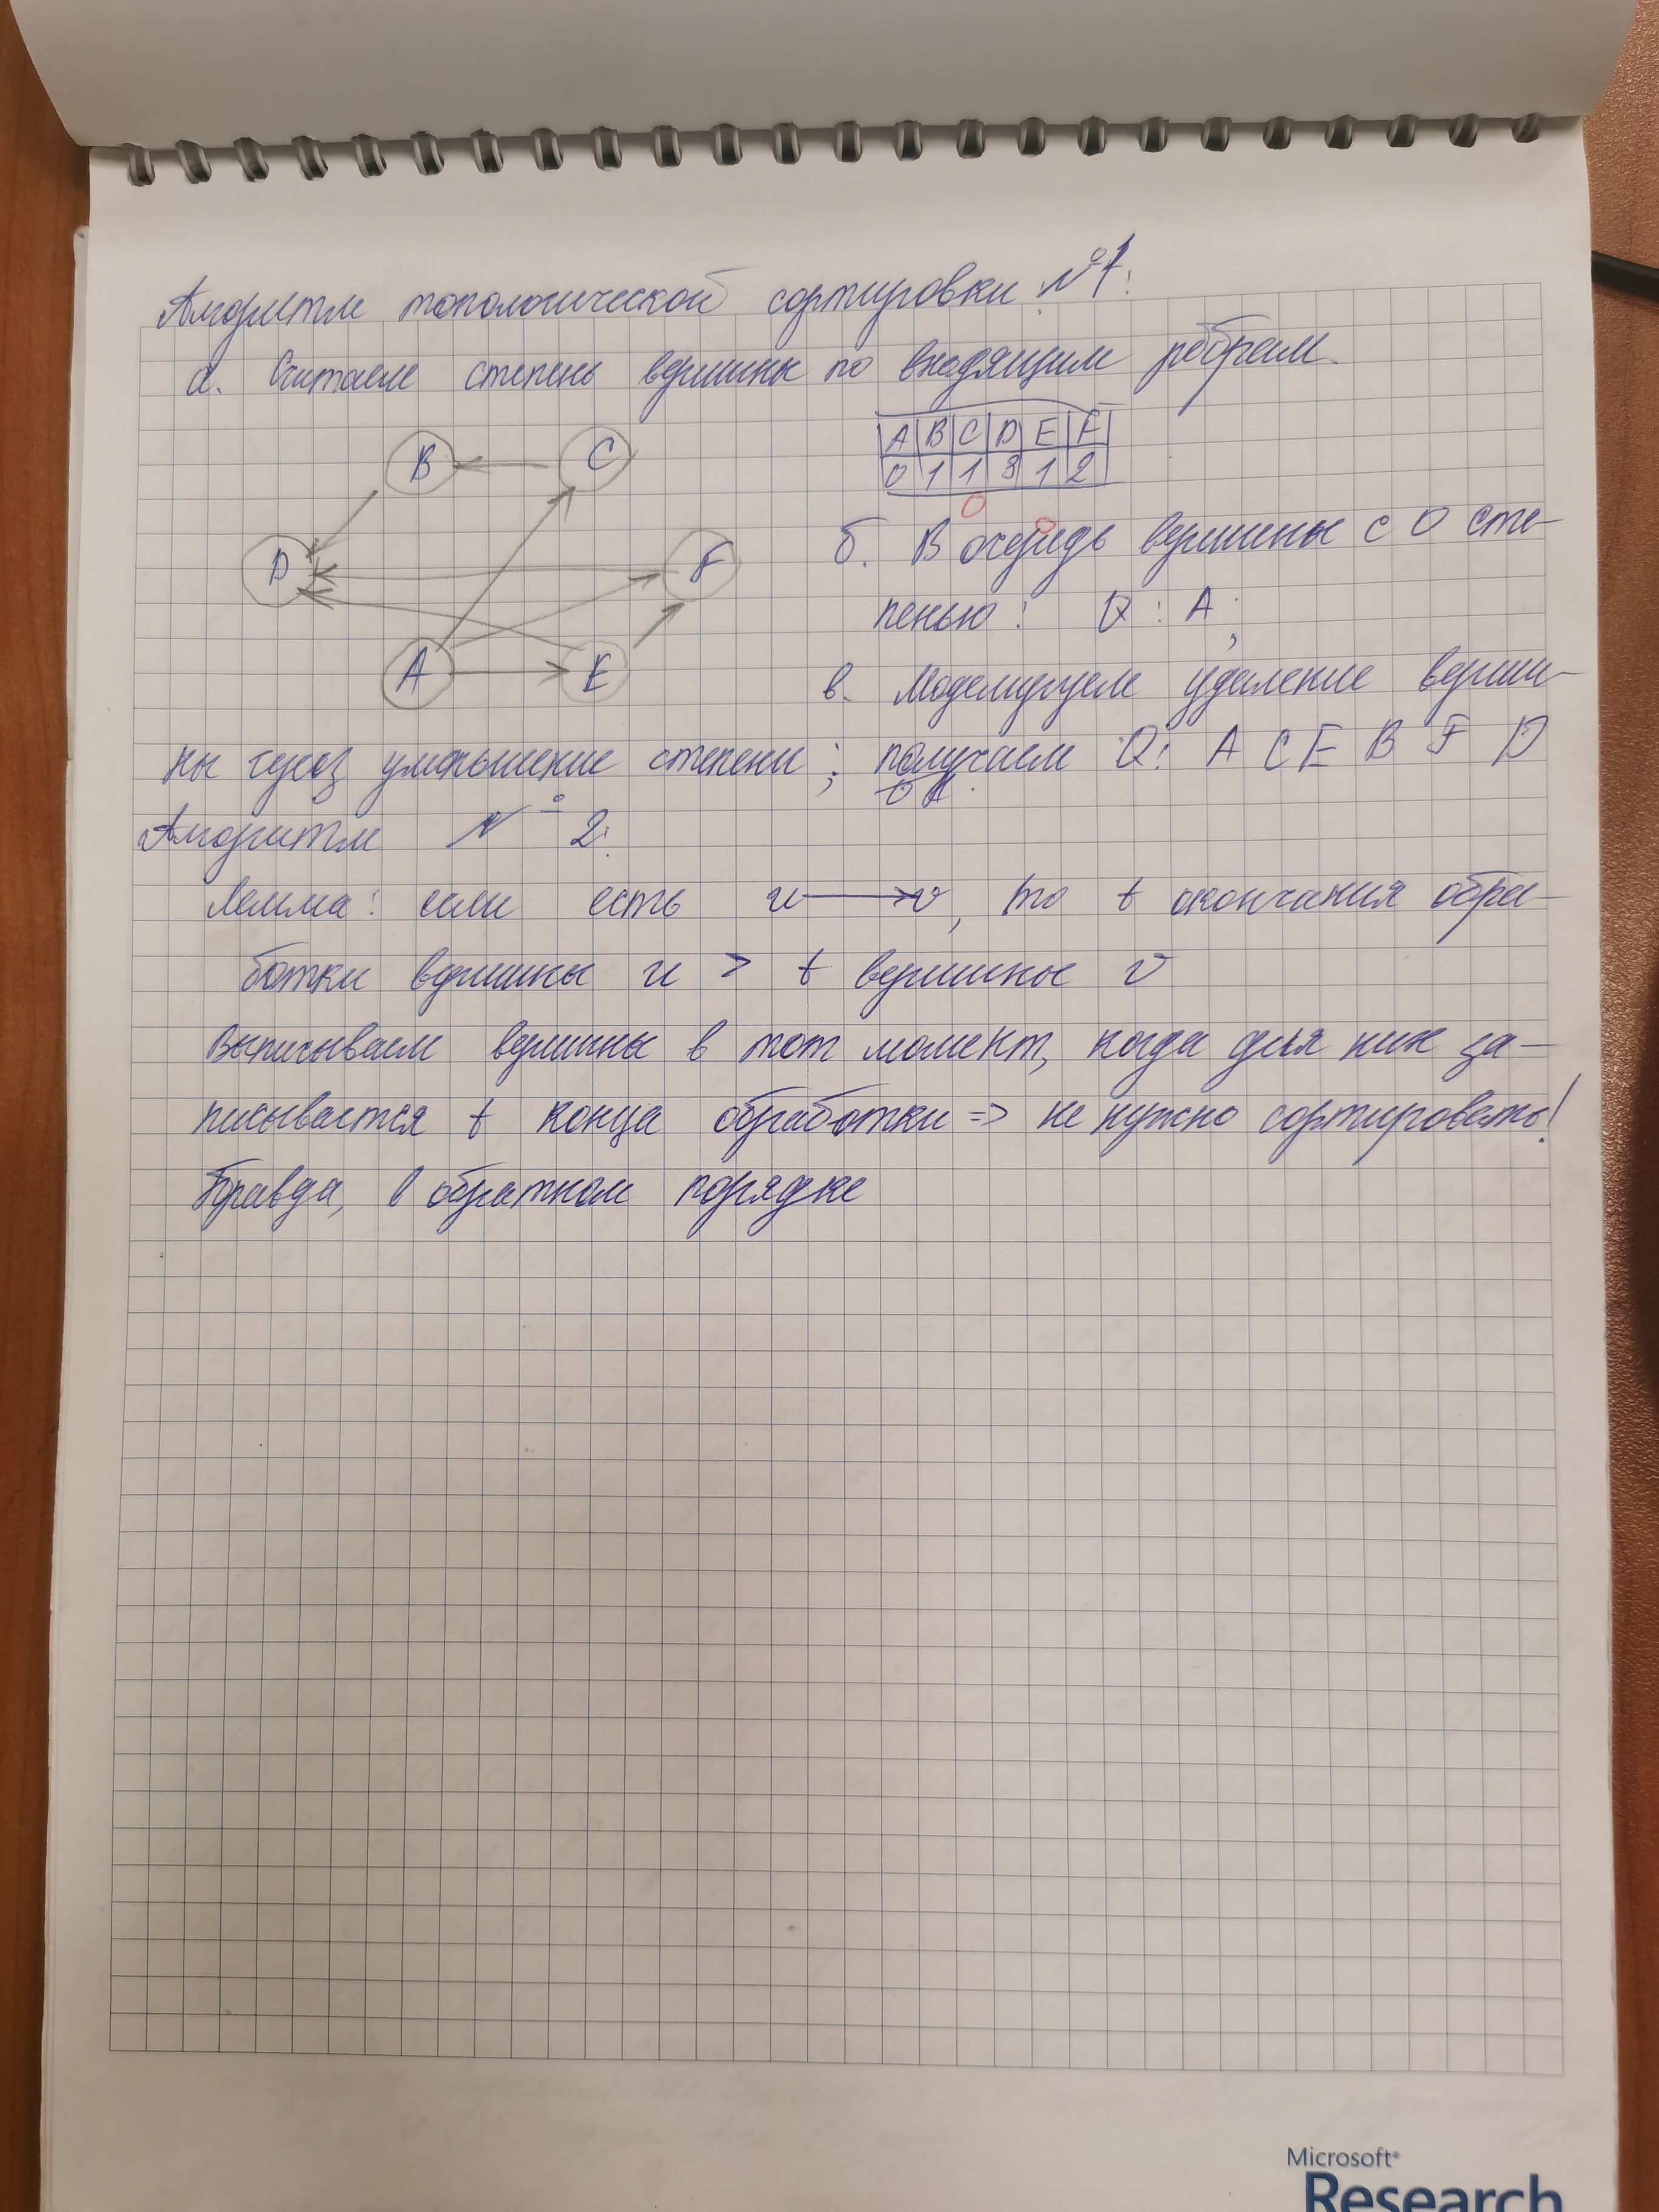 Алгоритм топологической сортировки №1.
а. Считаем степень вершины по входящим ребрам.
A B C D E F
0 1 1 3 1 2
0 0
B C
D F
A E
б. В очередь вершины с 0 сте-
пенью: Q: A,
в. Моделируем удаление верши-
ны через уменьшение степени; получаем Q: A C E B F D
Алгоритм № 2:
Лемма: если есть u → v, то t окончания обра-
ботки вершины u > t вершины v
Выписываем вершины в тот момент, когда для них за-
писывается t конца обработки => не нужно сортировать!
Правда, в обратном порядке
Microsoft
Research